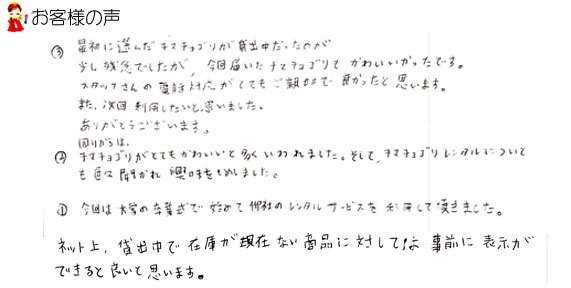 お客様の声
③ 最初に選んだチマチョゴリが貸出中だったのが
少し残念でしたが、今回届いたチマチョゴリも かわいいかったです。
スタッフさんの電話対応がとてもご親切で良かったと思います。
また、次回利用したいと思いました。
ありがとうございます。
回りからは、
② チマチョゴリがとてもかわいいと多くいわれました。そして、チマチョゴリレンタルについて
も色々聞かれ興味をもしました。
① 今回は大学の卒業式で始めて御社のレンタルサービスを利用して頂きました。
ネット上、貸出中で在庫が現在ない商品に対しては事前に表示が
できると良いと思います。